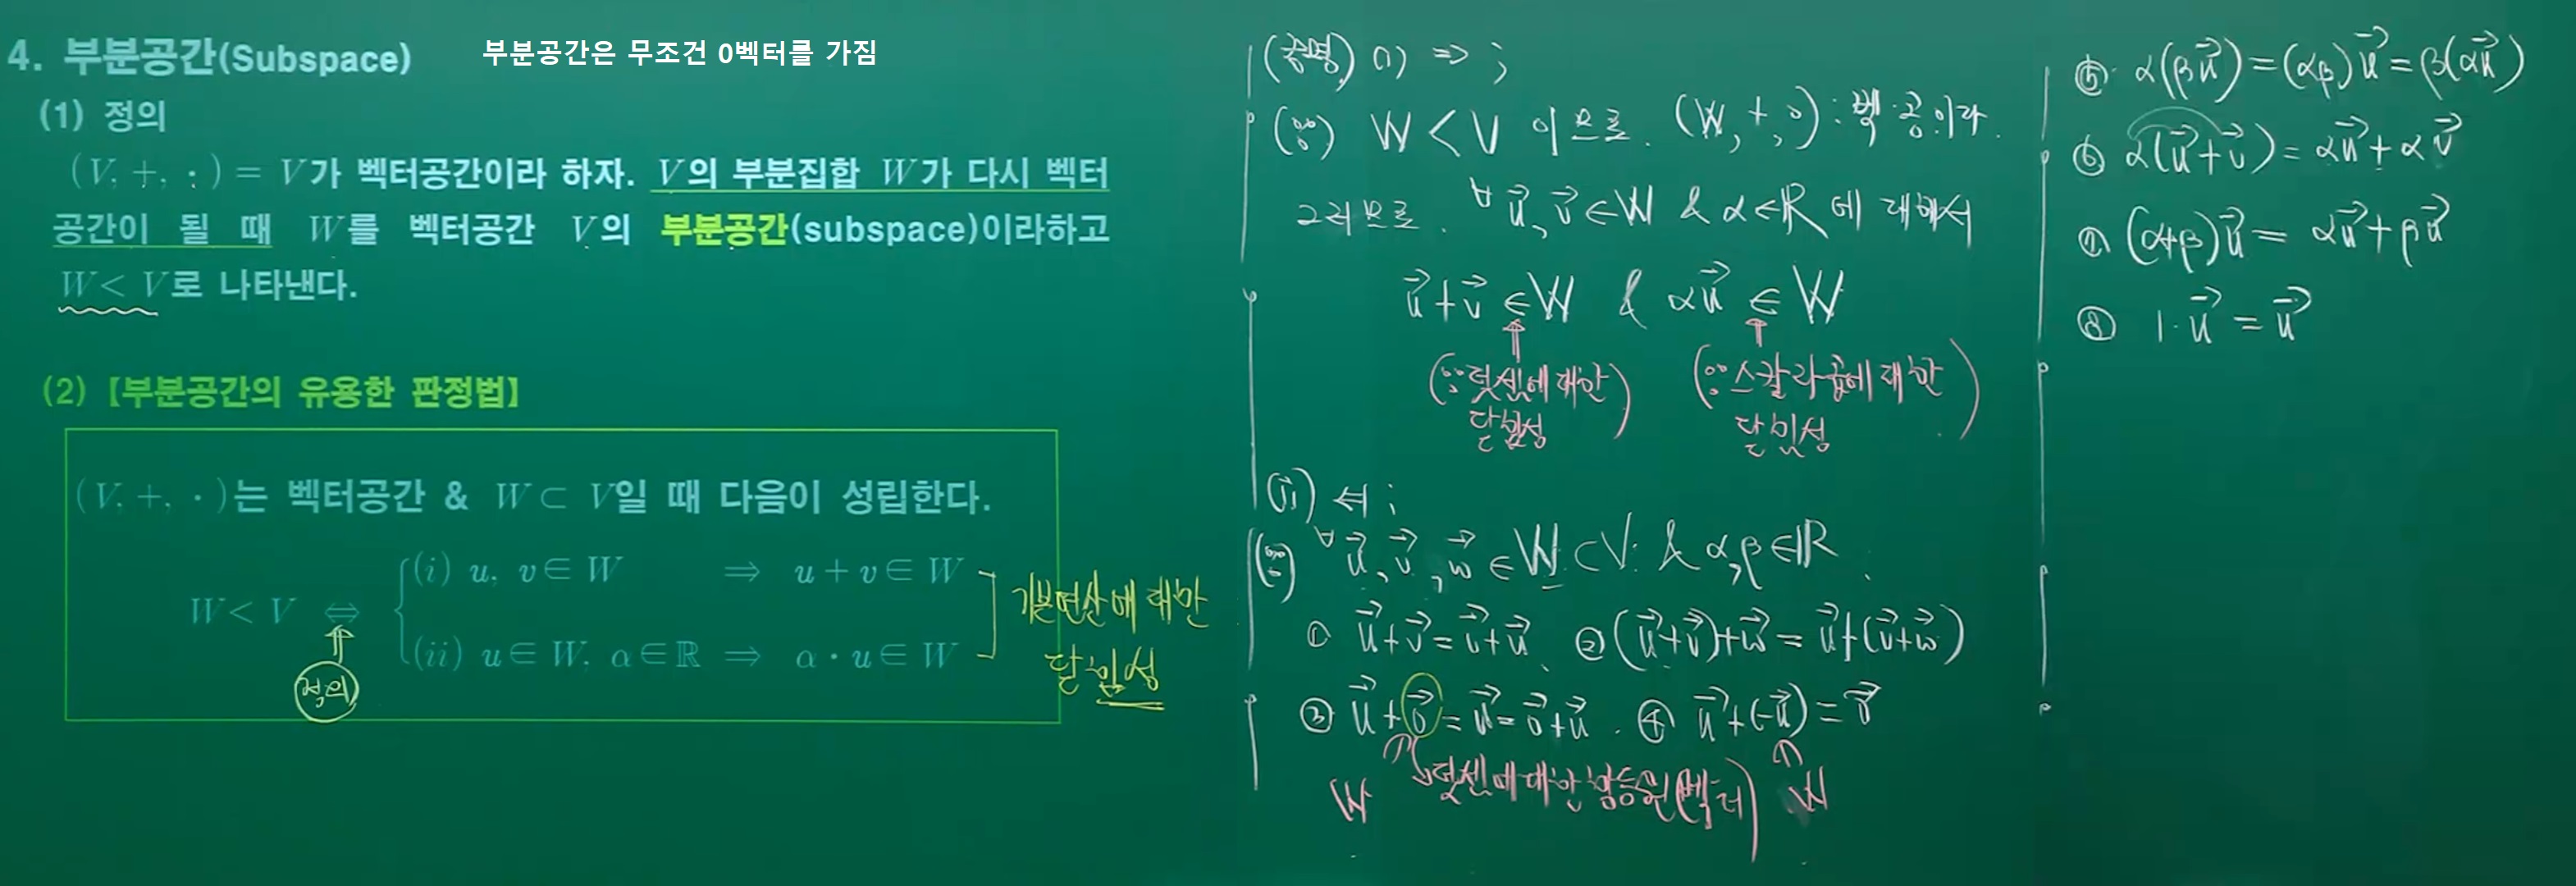 4. 부분공간(Subspace)
부분공간은 무조건 0벡터를 가짐
(1) 정의
(V, +, ·) = V가 벡터공간이라 하자. V의 부분집합 W가 다시 벡터
공간이 될 때 W를 벡터공간 V의 부분공간(subspace)이라하고
W < V로 나타낸다.
(2) 【부분공간의 유용한 판정법】
(V, +, ·)는 벡터공간 & W ⊂ V일 때 다음이 성립한다.
W < V ⇔
(i) u, v ∈ W ⇒ u + v ∈ W
(ii) u ∈ W, α ∈ ℝ ⇒ α · u ∈ W
정의
기본연산에 대한
닫힘성
(증명) (i) ⇒ ;
(∵) W < V 이므로. (W, +, ·) : 벡·공이다.
그러므로. ∀u⃗, v⃗ ∈ W & α ∈ ℝ 에 대해서
u⃗ + v⃗ ∈ W & αu⃗ ∈ W
(∵ 덧셈에 대한
닫힘성)
(∵ 스칼라곱에 대한
닫힘성)
(ii) ⇐ ;
(∵) ∀u⃗, v⃗, w⃗ ∈ W ⊂ V. & α, β ∈ ℝ.
① u⃗ + v⃗ = v⃗ + u⃗ ② (u⃗ + v⃗) + w⃗ = u⃗ + (v⃗ + w⃗)
③ u⃗ + 0⃗ = u⃗ = 0⃗ + u⃗ . ④ u⃗ + (-u⃗) = 0⃗
W 덧셈에 대한 항등원(벡터) W
⑤ α(βu⃗) = (αβ)u⃗ = β(αu⃗)
⑥ α(u⃗ + v⃗) = αu⃗ + αv⃗
⑦ (α+β)u⃗ = αu⃗ + βu⃗
⑧ 1·u⃗ = u⃗